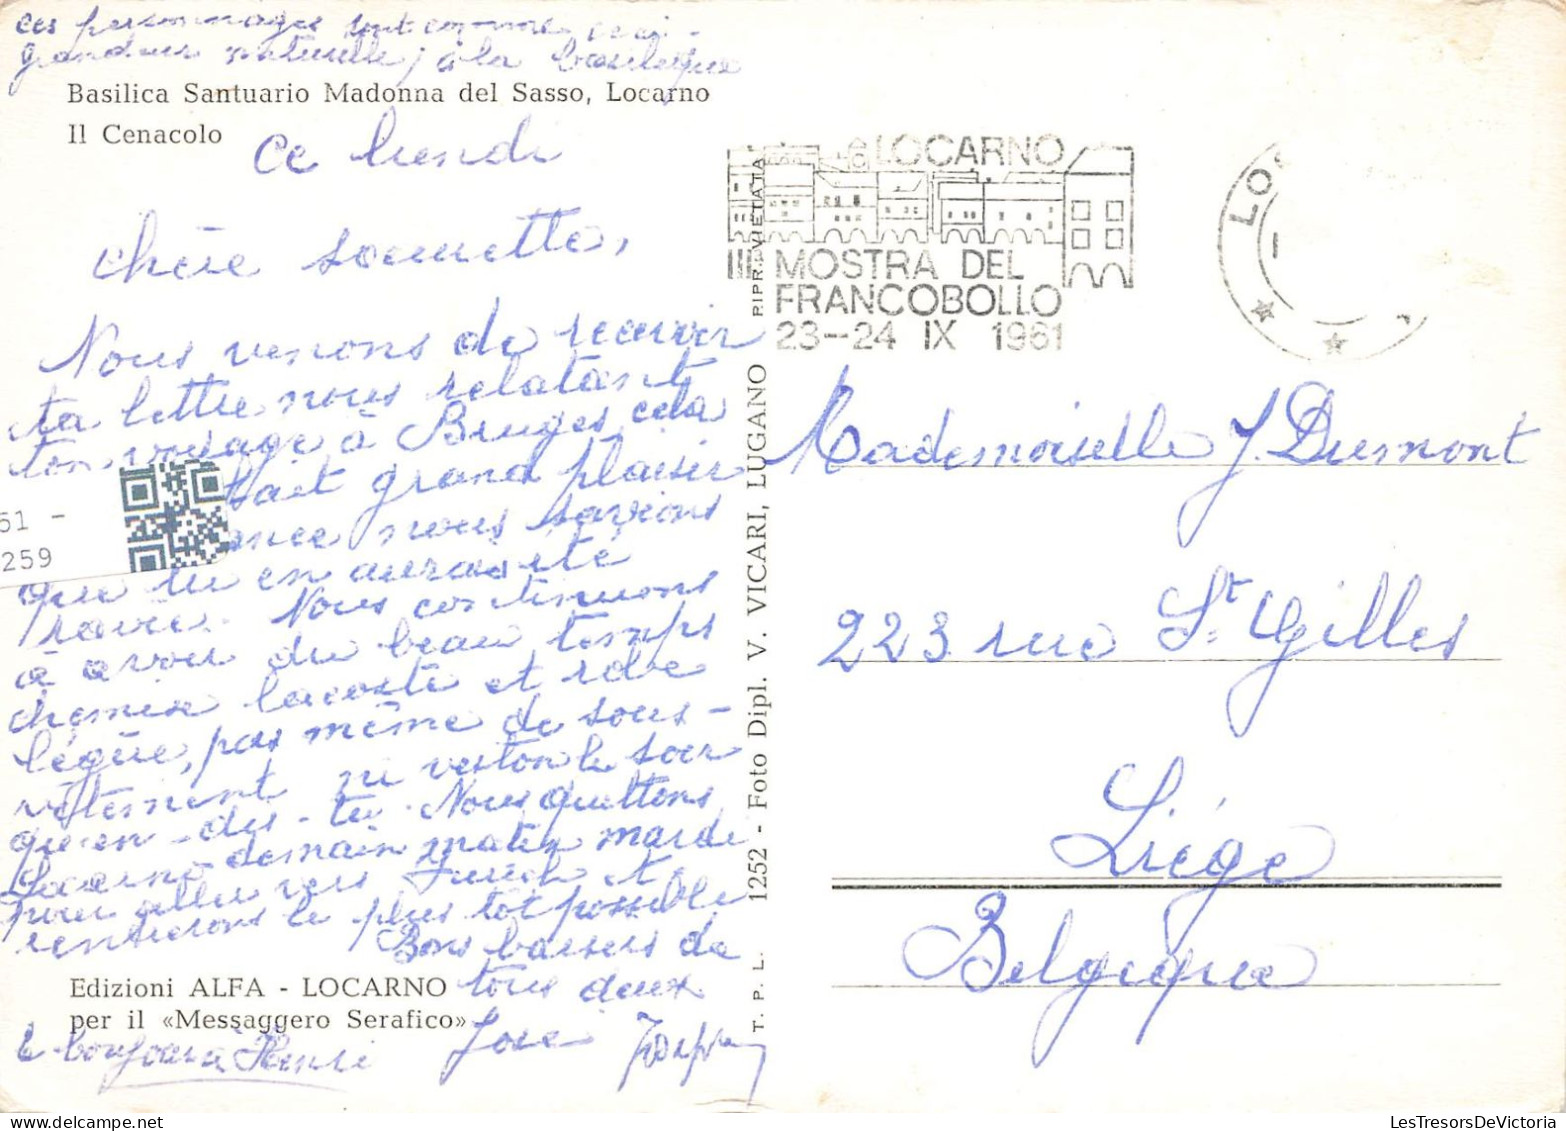 ces personnages sont comme ceci -
grandeur naturelle, à la basilique
Basilica Santuario Madonna del Sasso, Locarno
Il Cenacolo
Ce lundi
Chère soeurette,
Nous venons de recevoir
ta lettre nous relatant
ton voyage à Bruges, cela
fait grand plaisir
nous savions
que tu en aurais été
ravie. Nous continuons
à avoir du beau temps
chemise lacoste et robe
légère, pas même de sous-
vêtement ni veston le soir
qu'en-dis-tu. Nous quittons
Locarno demain matin mardi
pour aller vers Zurich et
rentrerons le plus tôt possible
Bons baisers de
tous deux
José
bonjour à Henri
Edizioni ALFA - LOCARNO
per il «Messaggero Serafico»
61 -
259
T. P. L. 1252 - Foto Dipl. V. VICARI, LUGANO RIPR. VIETATA
LOCARNO
III MOSTRA DEL
FRANCOBOLLO
23-24 IX 1961
LO
Mademoiselle J. Dumont
223 rue St. Gilles
Liége
Belgique
LesTresorsDeVictoria